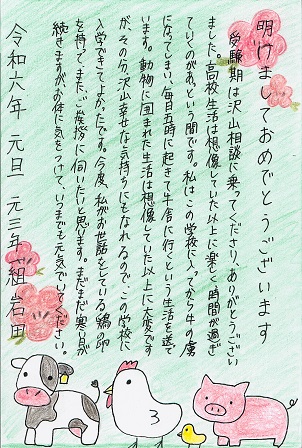 明けましておめでとうございます
受験期は沢山相談に乗ってくださり、ありがとうござい
ました。高校生活は想像していた以上に楽しく時間が過ぎ
ていくのがあっという間です。私はこの学校に入ってから牛の虜
になってしまい、毎日五時に起きて牛舎に行くという生活を送て
います。動物に囲まれた生活は想像していた以上に大変です
が、その分、沢山幸せな気持ちにもなれるので、この学校に
入学できてよかったです。今度、私がお世話をしている鶏の卵
を持って、また、ご挨拶に伺いたいと思います。まだまだ寒い日が
続きますがお体に気をつけて、いつまでも元気でいてください。
令和六年 元旦 元三年 組 岩田